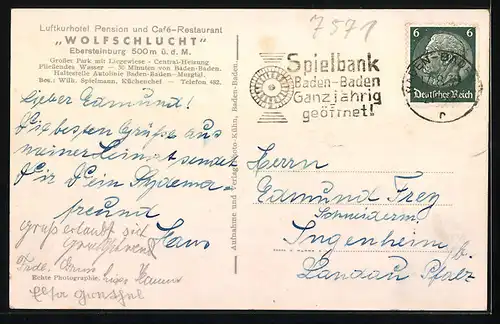 7571
Luftkurhotel Pension und Café-Restaurant
„WOLFSCHLUCHT"
Ebersteinburg 500 m ü. d. M.
Großes Park mit Liegewiese - Central-Heizung
Fließendes Wasser — 30 Minuten von Baden-Baden.
Haltestelle Autolinie Baden-Baden-Murgtal.
Bes.: Wilh. Spielmann, Küchenchef — Telefon 483.
Spielbank
Baden-Baden
Ganzjährig
geöffnet!
6 6
Deutsches Reich
BADEN-BADEN
Lieber Edmund!
Die besten Grüße aus
meiner Heimat sendet
Dir Dein
freund
Hans
Gruß erlaubt sich
Echte Photographie
Aufnahme und Verlag Photo-Kühn, Baden-Baden.
Herrn
Edmund Frey
Schneiderm.
Ingenheim
Landau Pfalz